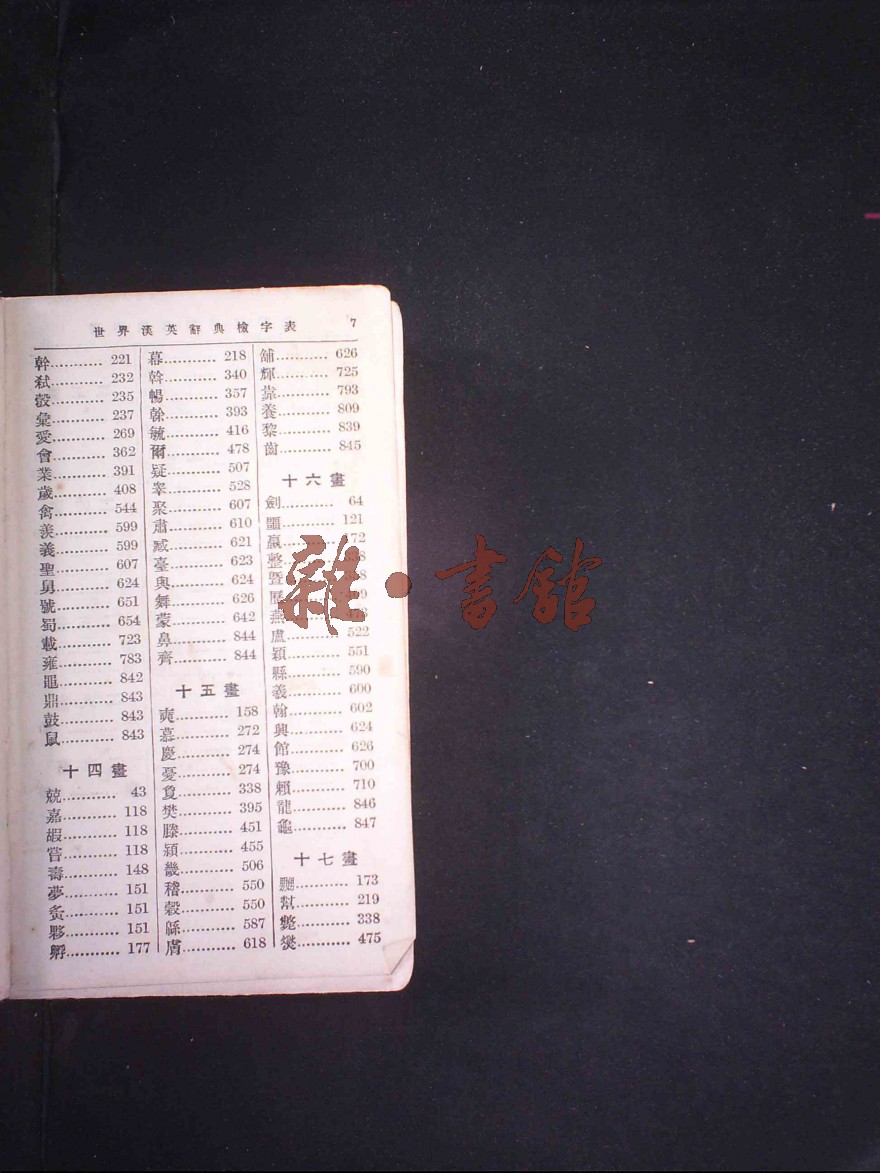 世界漢英辭典檢字表 7
幹 221
弑 232
彀 235
彙 237
愛 269
會 362
業 391
歲 408
禽 544
羨 599
義 599
聖 607
舅 624
號 651
蜀 654
載 723
雍 783
黽 842
鼎 843
鼓 843
鼠 843
十四畫
兢 43
嘉 118
嘏 118
嘗 118
壽 148
夢 151
夤 151
夥 151
孵 177
幕 218
斡 340
暢 357
榦 393
毓 416
爾 478
疑 507
睾 528
聚 607
肅 610
臧 621
臺 623
與 624
舞 626
蒙 642
鼻 844
齊 844
十五畫
奭 158
慕 272
慶 274
憂 274
敻 338
樊 395
滕 451
潁 455
畿 506
稽 550
穀 550
緜 587
膚 618
舖 626
輝 725
靠 793
養 809
黎 839
齒 845
十六畫
劍 64
嬴 172
整
暨
歷
燕
盧 522
穎 551
縣 590
羲 600
翰 602
興 624
館 626
豫 700
賴 710
龍 846
龜 847
十七畫
幫 219
斃 338
燮 475
雜·書館